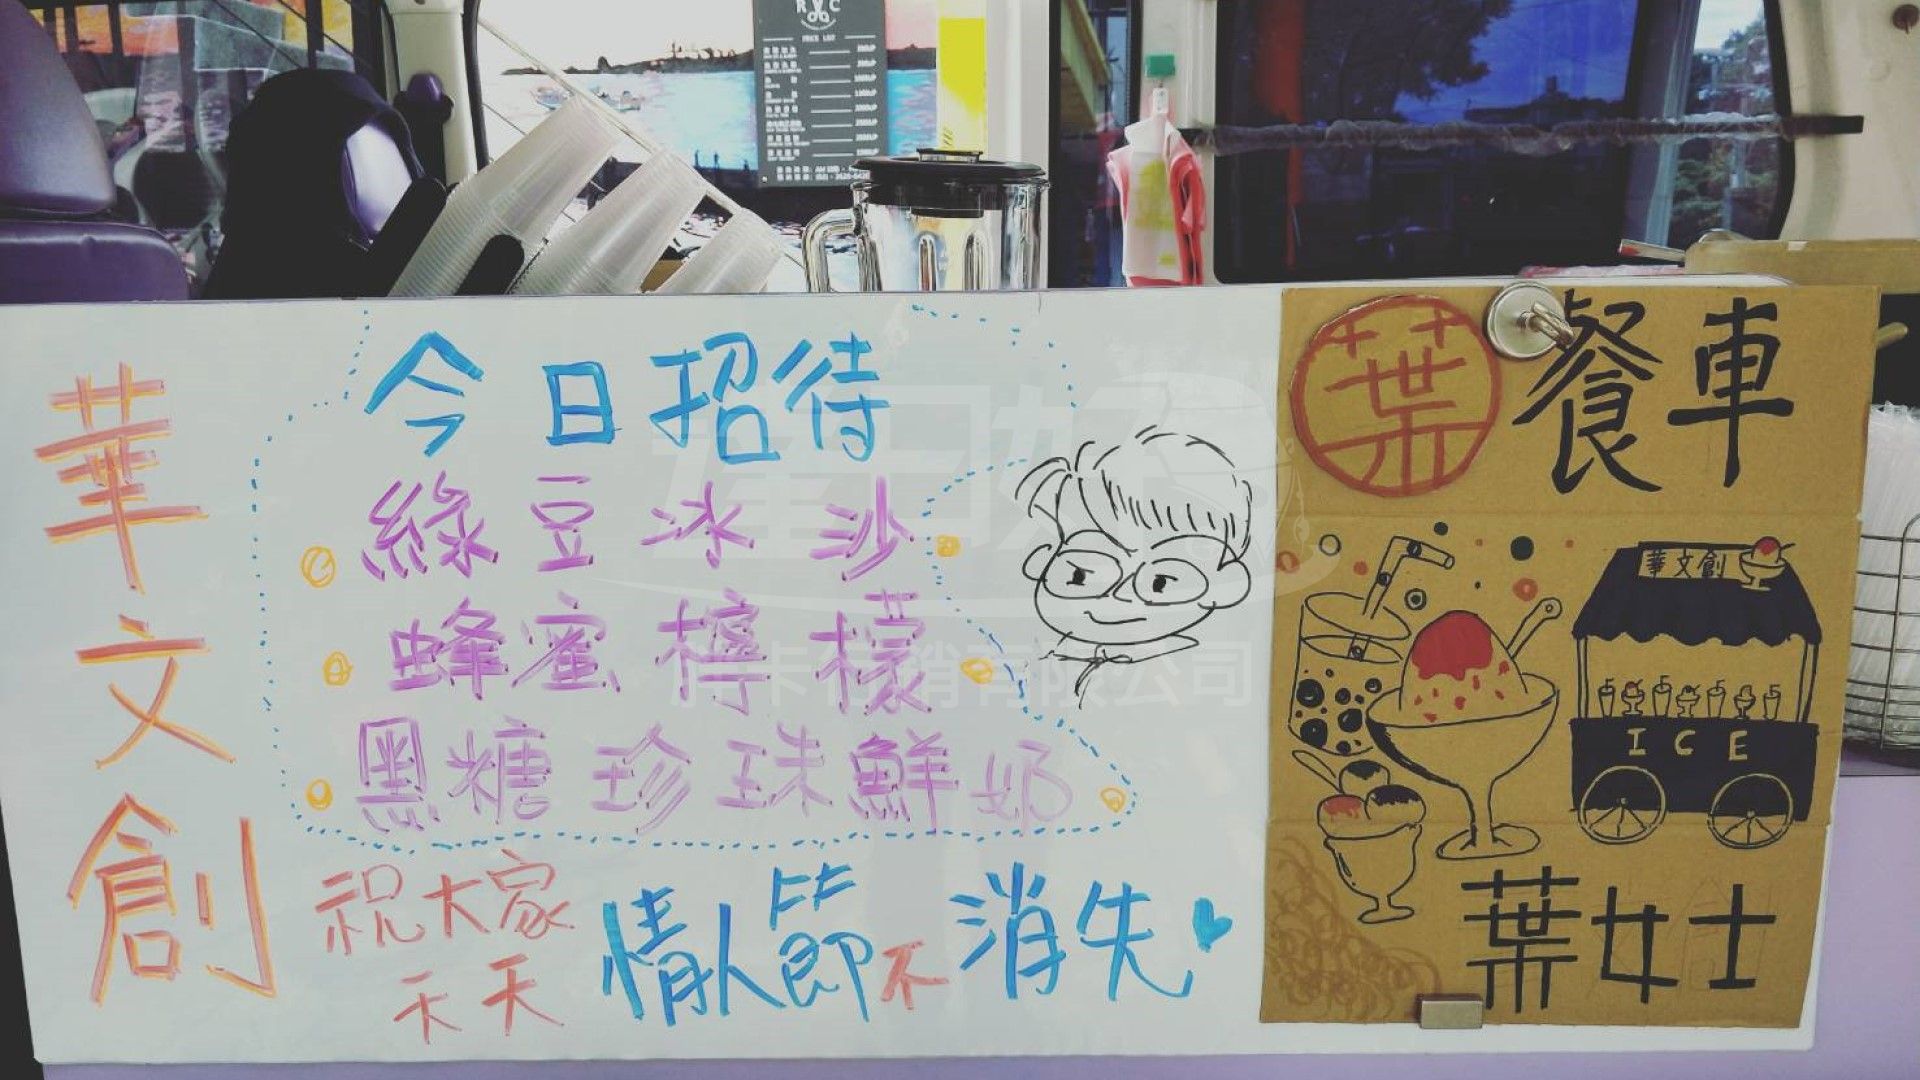 RC
PRICE LIST
華文創
今日招待
綠豆冰沙
蜂蜜檸檬
黑糖珍珠鮮奶
祝大家
天天
情人節不消失
葉
餐車
華文創
ICE
葉女士
有限公司